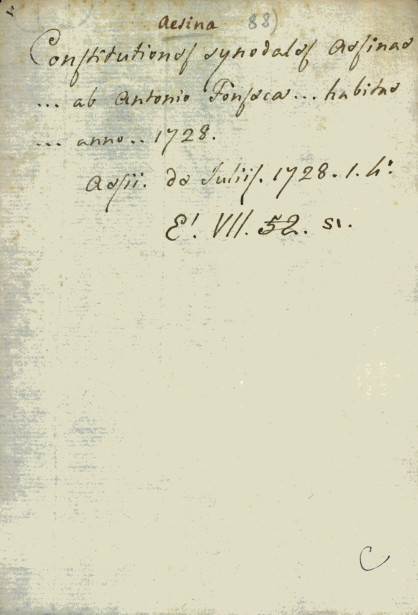 Aesina 88)
Constitutiones synodales Aesinae
... ab Antonio Fonseca... habitae
... anno.. 1728.
Aesii. de Juliis. 1728. 1. 4°.
E'. VII. 52. 51.
C